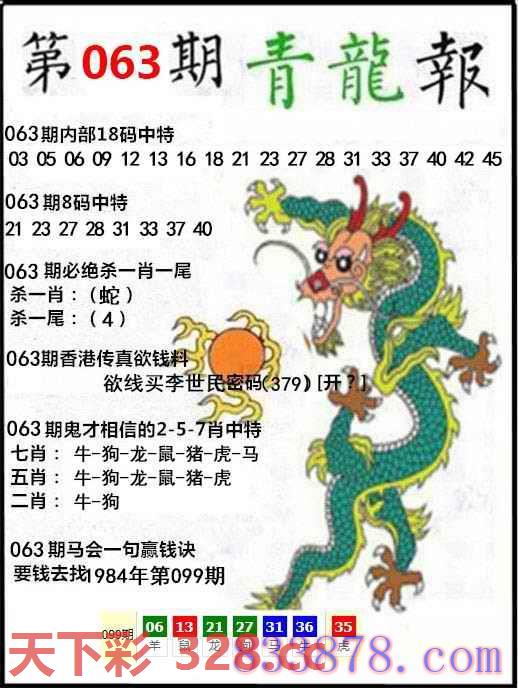 第063期青龍報
063期内部18码中特
03 05 06 09 12 13 16 18 21 23 27 28 31 33 37 40 42 45
063期8码中特
21 23 27 28 31 33 37 40
063期必绝杀一肖一尾
杀一肖：（蛇）
杀一尾：（4）
063期香港传真欲钱料
欲线买李世民密码(379)[开?]
063期鬼才相信的2-5-7肖中特
七肖： 牛-狗-龙-鼠-猪-虎-马
五肖： 牛-狗-龙-鼠-猪-虎
二肖： 牛-狗
063期马会一句赢钱诀
要钱去找1984年第099期
099期 06 13 21 27 31 36 35
羊 鼠 龙 马 牛 虎
天下彩 328
833878.com